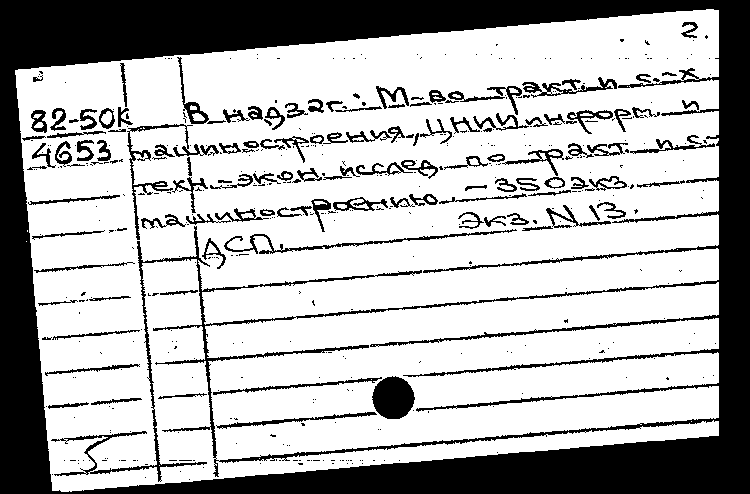 2.
82-50к В надзаг.: М-во тракт. и с.-х
4653 машиностроения, ЦНИИ информ. и
техн.-экон. исслед. по тракт. и с.-
машиностроению. - 350 экз.
ДСП. Экз. N 13.
5